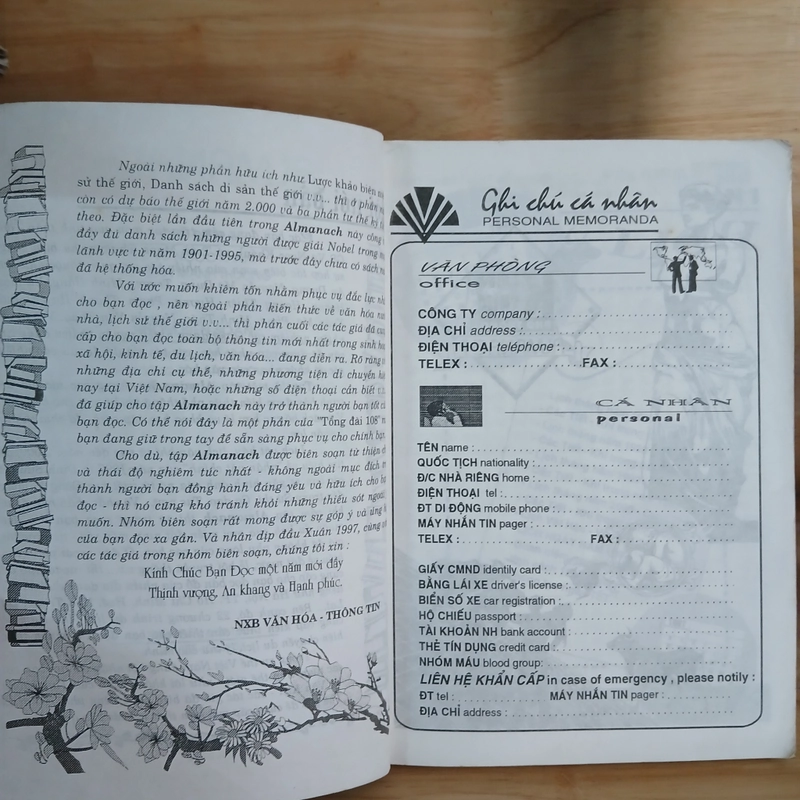 Ngoài những phần hữu ích như Lược khảo biên
sử thế giới, Danh sách di sản thế giới v.v... thì ở phần
còn có dự báo thế giới năm 2.000 và ba phần tư thế kỷ
theo. Đặc biệt lần đầu tiên trong Almanach này công
đầy đủ danh sách những người được giải Nobel trong
lãnh vực từ năm 1901-1995, mà trước đây chưa có sách
đã hệ thống hóa.
Với ước muốn khiêm tốn nhằm phục vụ đắc lực
cho bạn đọc , nên ngoài phần kiến thức về văn hóa
nhà, lịch sử thế giới v.v... thì phần cuối các tác giả đã
cấp cho bạn đọc toàn bộ thông tin mới nhất trong sinh
xã hội, kinh tế, du lịch, văn hóa... đang diễn ra. Rõ ràng
những địa chỉ cụ thể, những phương tiện di chuyển
nay tại Việt Nam, hoặc những số điện thoại cần biết
đã giúp cho tập Almanach này trở thành người bạn tốt
bạn đọc. Có thể nói đây là một phần của "Tổng đài 108"
bạn đang giữ trong tay để sẵn sàng phục vụ cho chính bạn.
Cho dù, tập Almanach được biên soạn từ thiện
và thái độ nghiêm túc nhất - không ngoài mục đích
thành người bạn đồng hành đáng yêu và hữu ích cho
đọc - thì nó cũng khó tránh khỏi những thiếu sót ngoài
muốn. Nhóm biên soạn rất mong được sự góp ý và ủng
của bạn đọc xa gần. Và nhân dịp đầu Xuân 1997, cùng
các tác giả trong nhóm biên soạn, chúng tôi xin :
Kính Chúc Bạn Đọc một năm mới đầy
Thịnh vượng, An khang và Hạnh phúc.
NXB VĂN HÓA - THÔNG TIN
Ghi chú cá nhân
PERSONAL MEMORANDA
VĂN PHÒNG
office
CÔNG TY company :
ĐỊA CHỈ address :
ĐIỆN THOẠI teléphone :
TELEX : FAX :
CÁ NHÂN
personal
TÊN name :
QUỐC TỊCH nationality :
Đ/C NHÀ RIÊNG home :
ĐIỆN THOẠI tel :
ĐT DI ĐỘNG mobile phone :
MÁY NHẮN TIN pager :
TELEX : FAX :
GIẤY CMND identily card :
BẰNG LÁI XE driver's license :
BIỂN SỐ XE car registration :
HỘ CHIẾU passport :
TÀI KHOẢN NH bank account :
THẺ TÍN DỤNG credit card :
NHÓM MÁU blood group:
LIÊN HỆ KHẨN CẤP in case of emergency , please notily :
ĐT tel : MÁY NHẮN TIN pager :
ĐỊA CHỈ address :